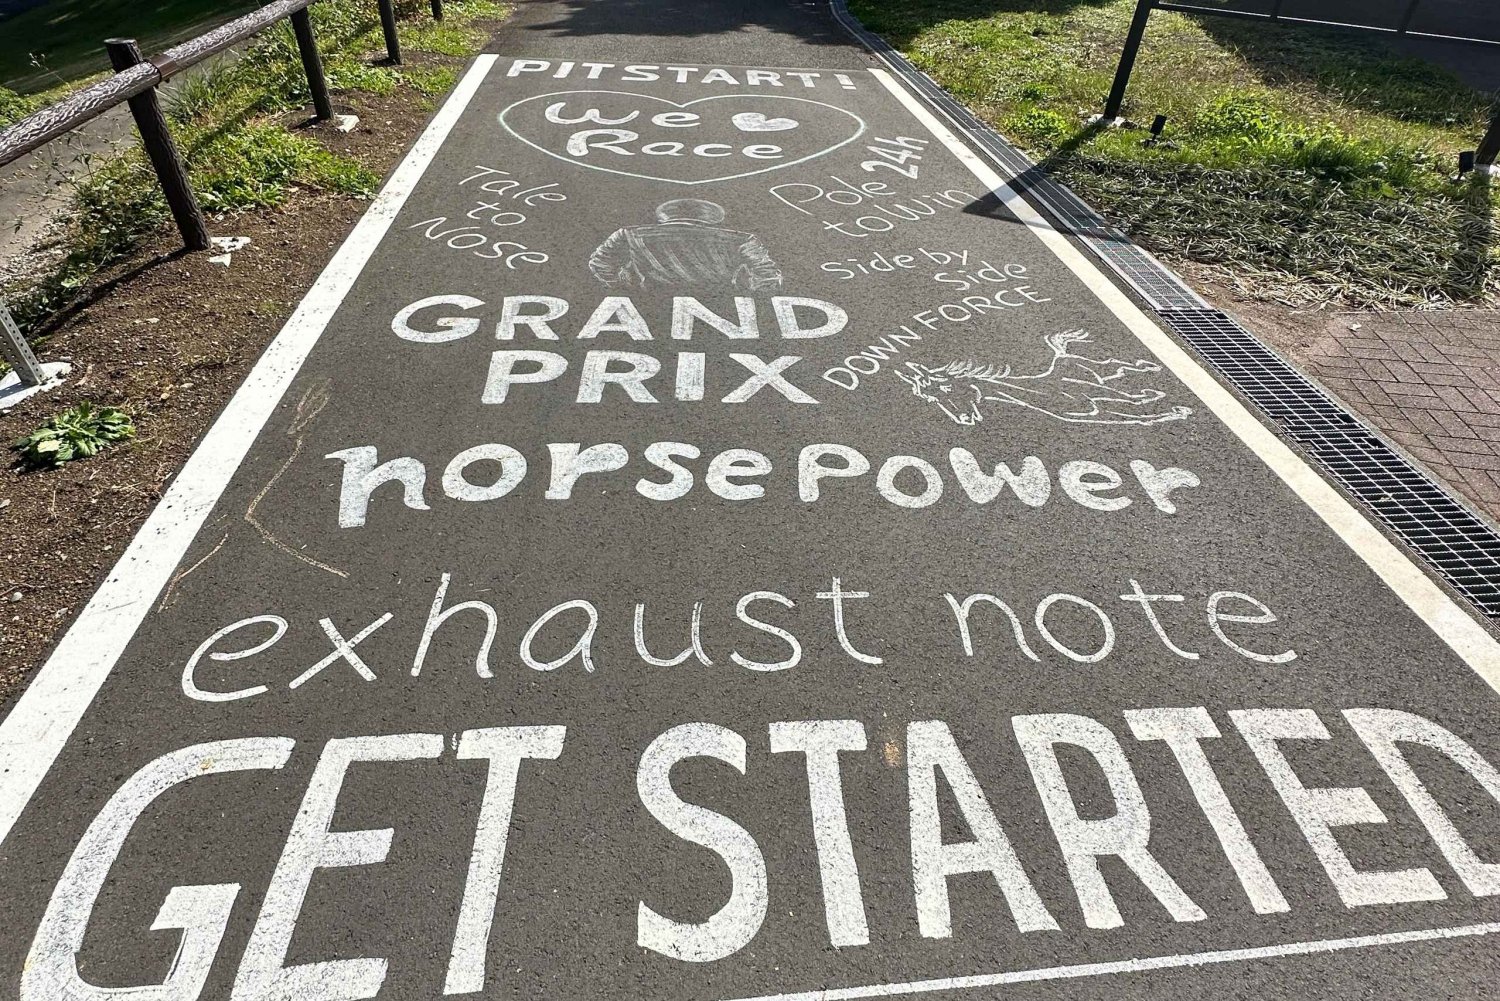 PIT START!
We
Race
24h
Tale
to
Nose
Pole
to Win
Side by
Side
DOWN FORCE
GRAND
PRIX
horse power
exhaust note
GET STARTED